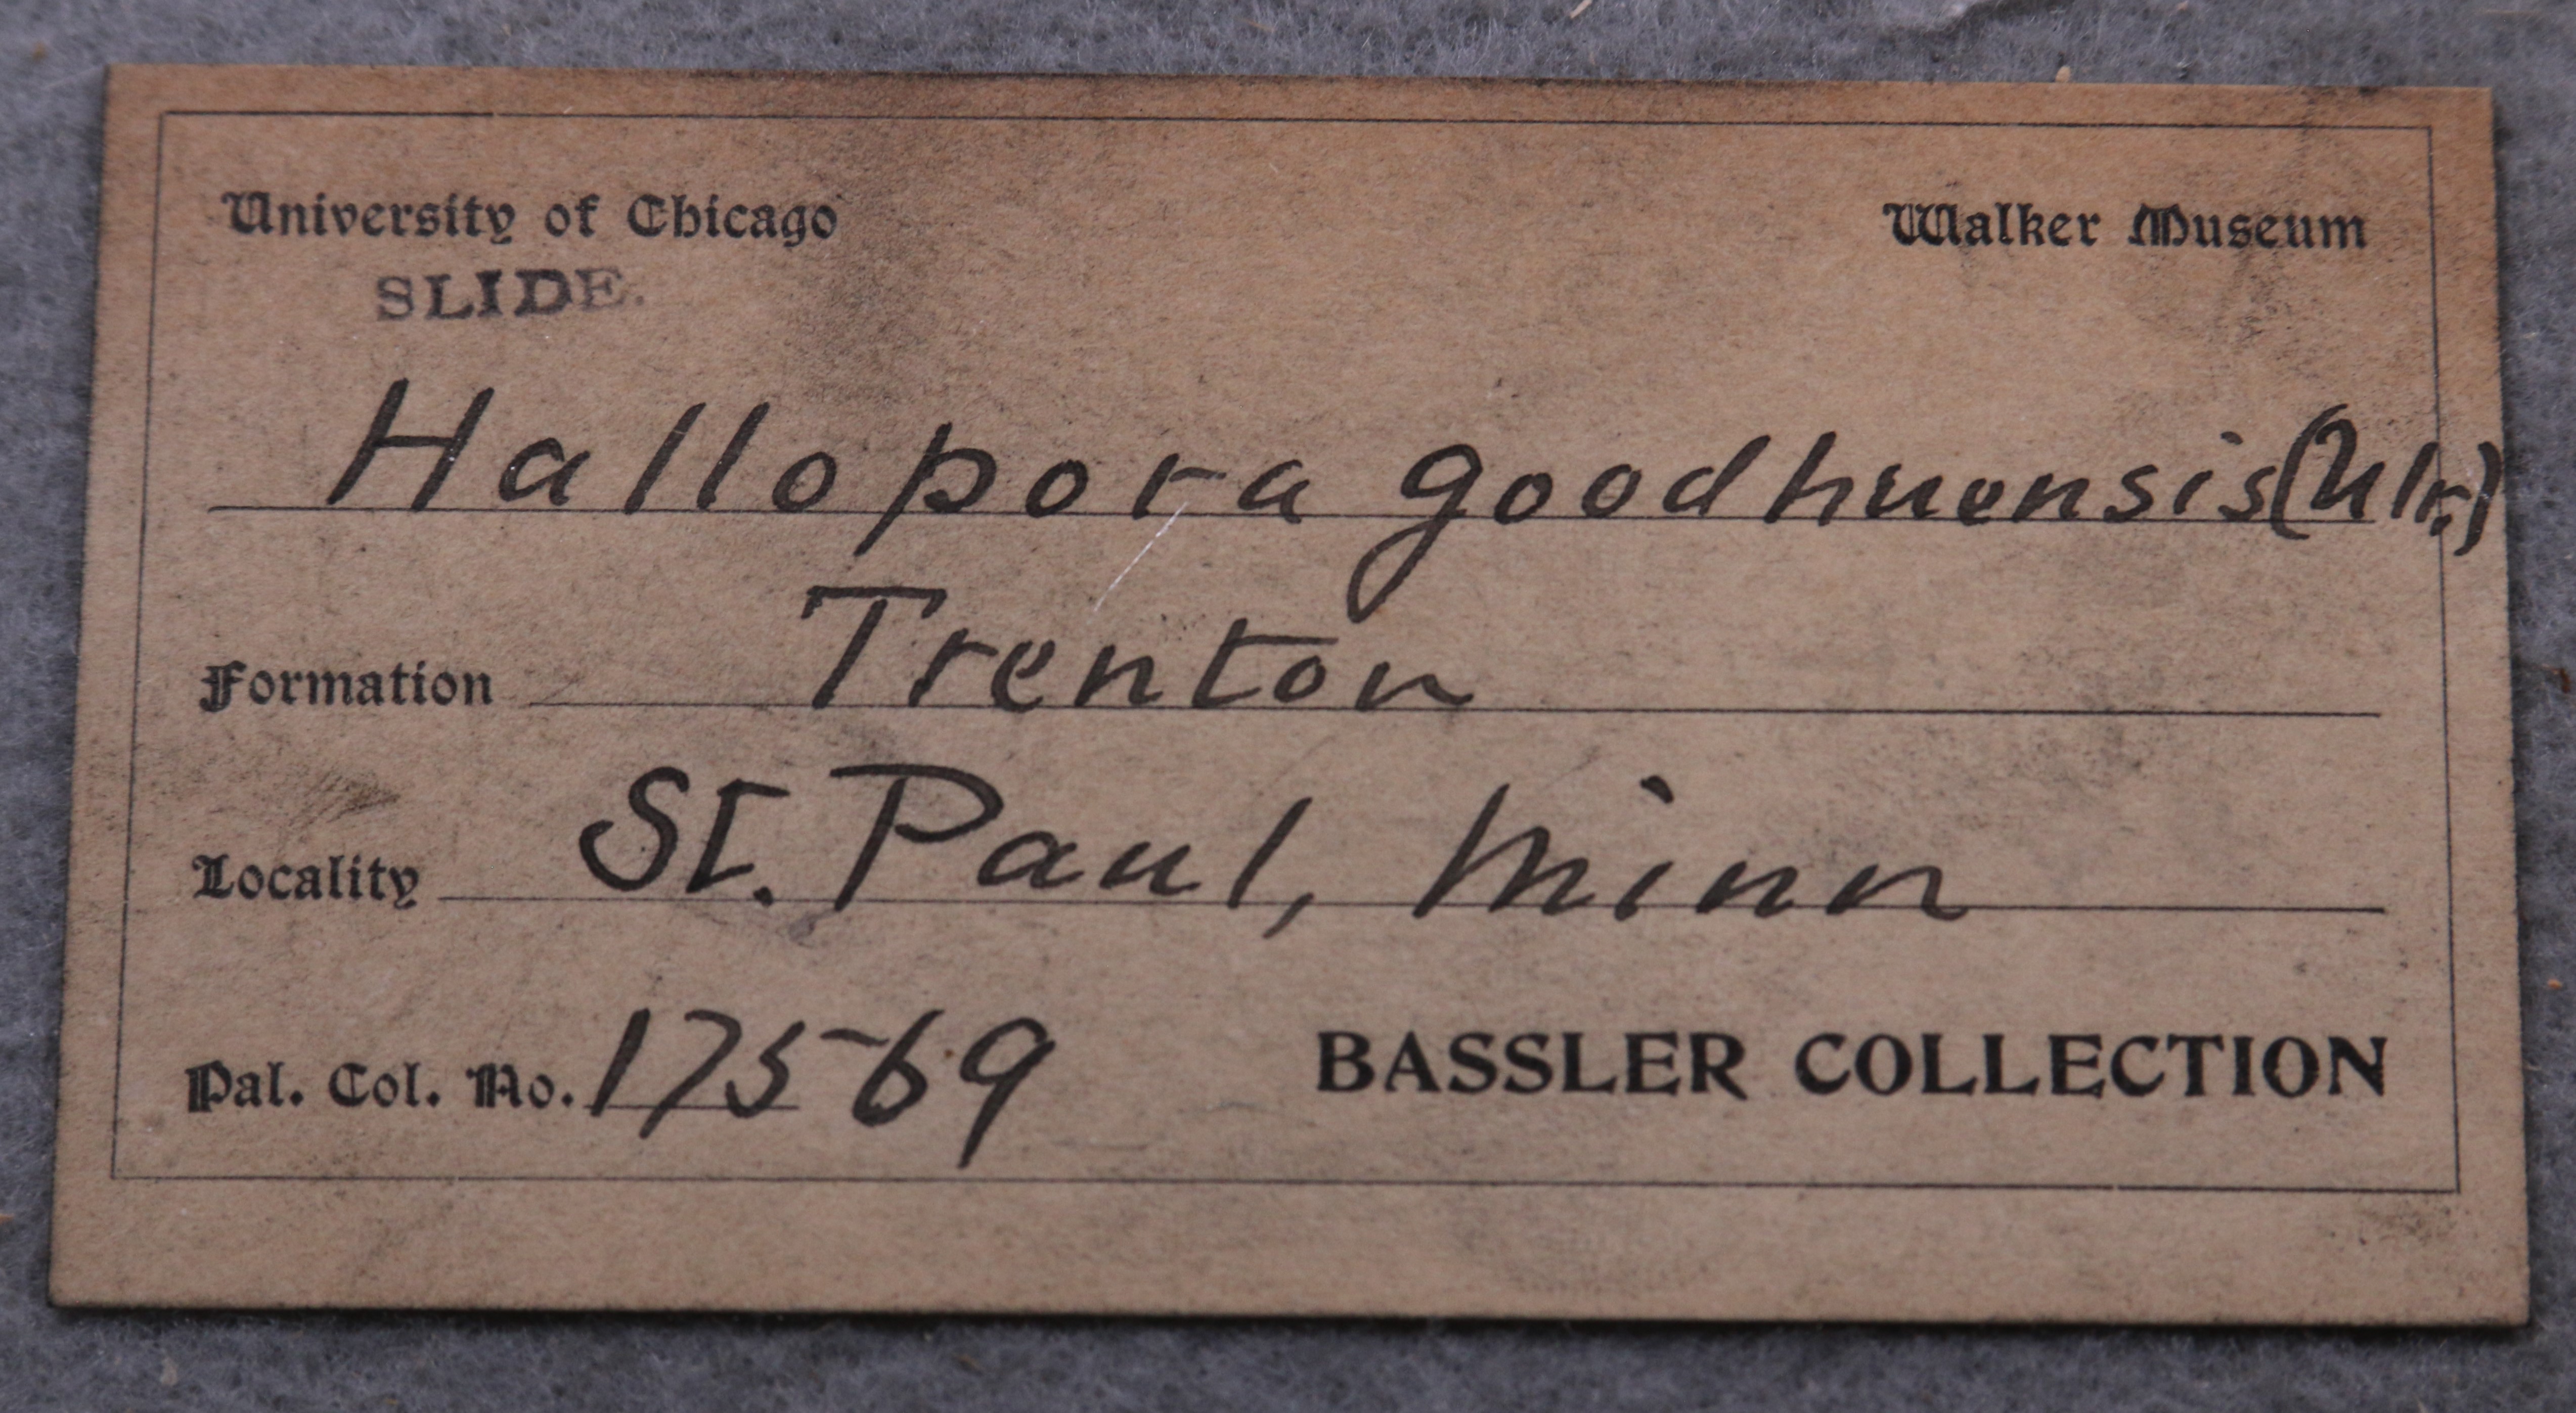 University of Chicago Walker Museum
SLIDE.
Hallopora goodhuensis (Ulr.)
Formation Trenton
Locality St. Paul, Minn
Pal. Col. No. 17569 BASSLER COLLECTION